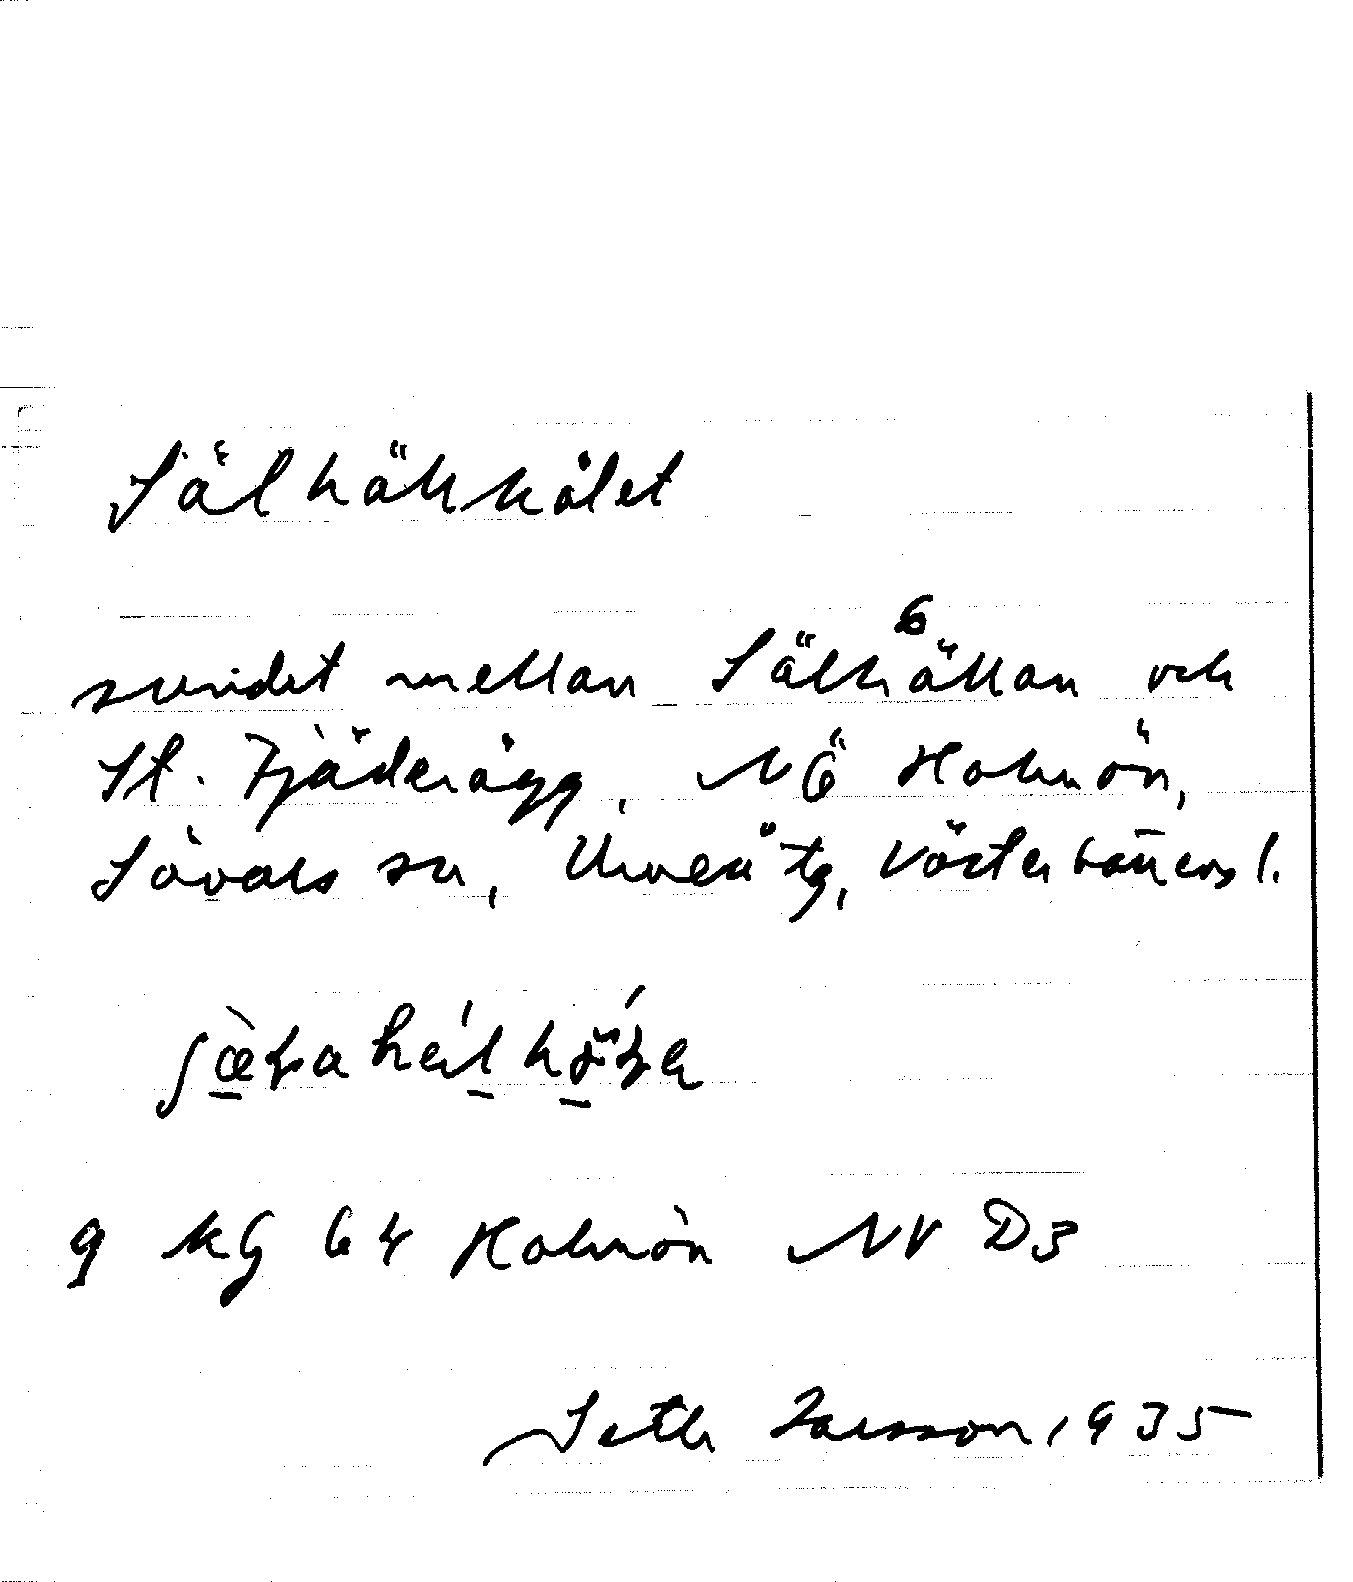 Sälhällkålet
6
sundet mellan Sälhällan och
St. Fjäderägg, NÖ Holmön,
Sävars sn, Umeå tg, Västerbottens l.
9 kG 64 Holmön NV D3
Seth Larsson, 1935